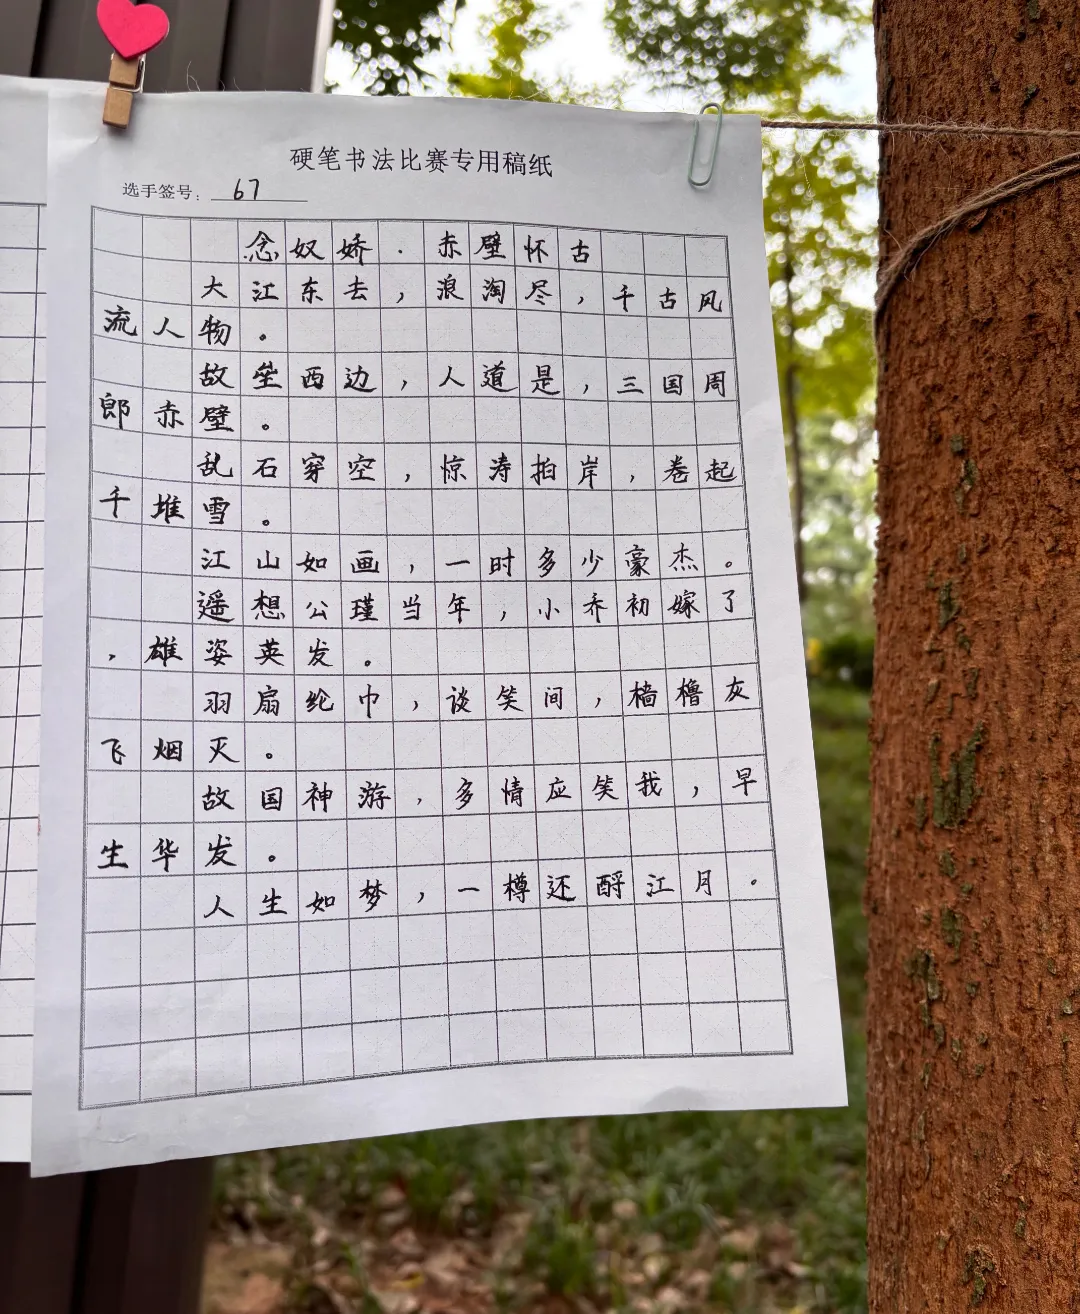 硬笔书法比赛专用稿纸
选手签号：67
念奴娇·赤壁怀古
大江东去，浪淘尽，千古风
流人物。
故垒西边，人道是，三国周
郎赤壁。
乱石穿空，惊涛拍岸，卷起
千堆雪。
江山如画，一时多少豪杰。
遥想公瑾当年，小乔初嫁了
，雄姿英发。
羽扇纶巾，谈笑间，樯橹灰
飞烟灭。
故国神游，多情应笑我，早
生华发。
人生如梦，一樽还酹江月。